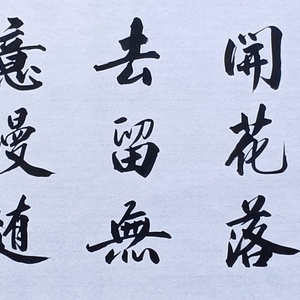 開花落
去留無
意漫随